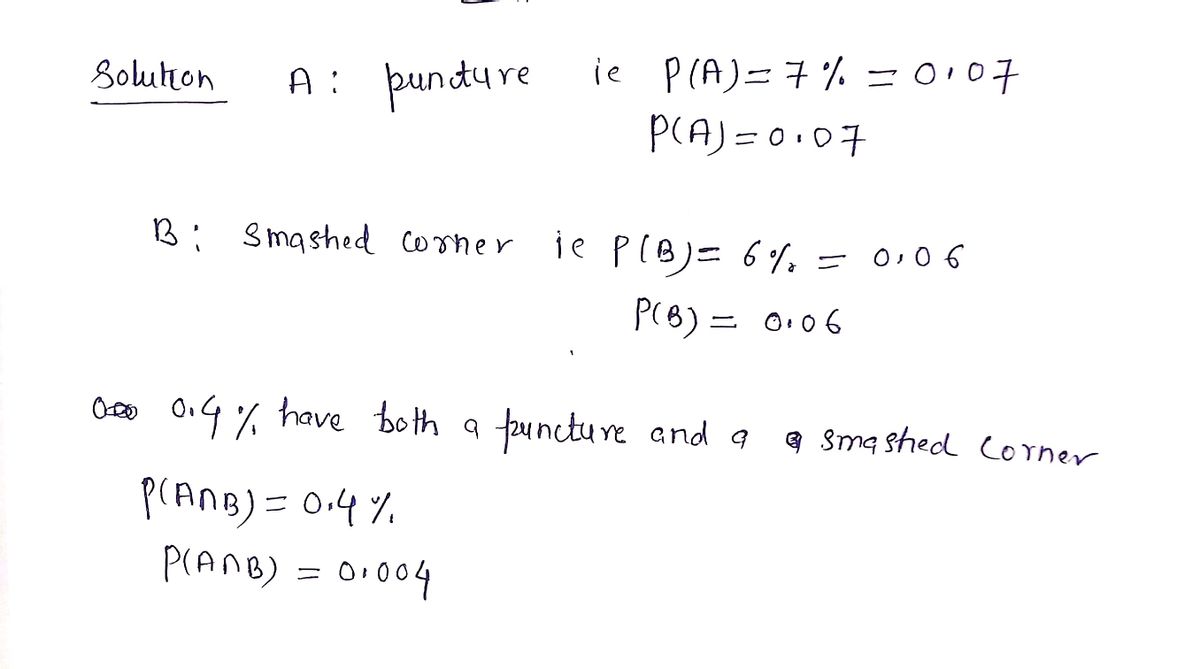 Solution A : puncture ie P(A) = 7 % = 0.07
P(A) = 0.07
B : Smashed corner ie P(B) = 6 % = 0.06
P(B) = 0.06
0.4 % have both a puncture and a a smashed corner
P(A∩B) = 0.4 %
P(A∩B) = 0.004